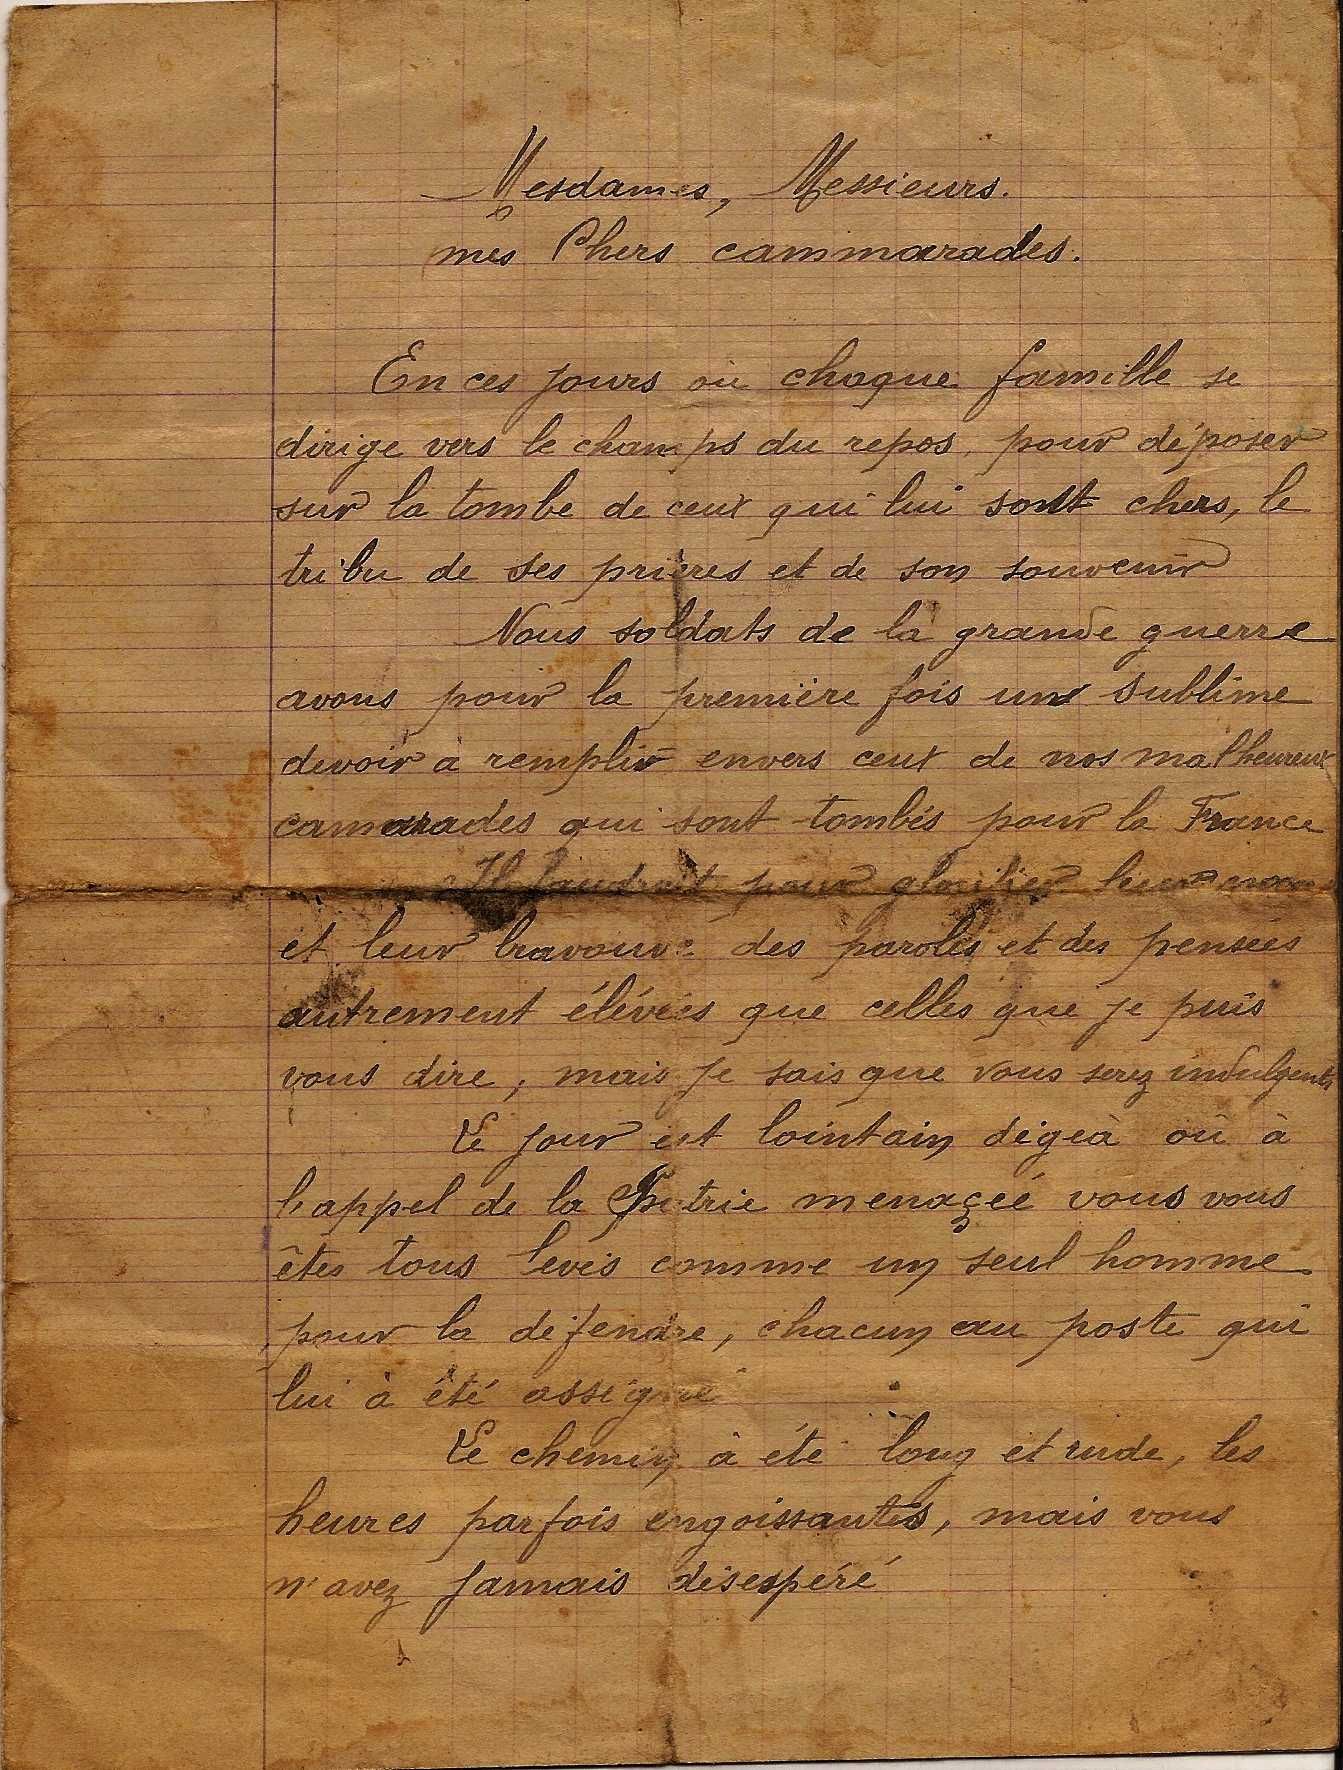 Mesdames, Messieurs.
mes Chers cammarades.
En ces jours où chaque famille se
dirige vers le champs du repos, pour déposer
sur la tombe de ceux qui lui sont chers, le
tribu de ses prières et de son souvenir
Nous soldats de la grande guerre
avons pour la première fois un sublime
devoir à remplir envers ceux de nos malheureux
camarades qui sont tombés pour la France
Il faudrait pour glorifier leur
et leur bravoure des paroles et des pensées
autrement élévées que celles que je puis
vous dire, mais je sais que vous serez indulgents
Le jour est lointain digeà où à
l'appel de la Patrie menaçeé vous vous
êtes tous levés comme un seul homme
pour la défendre, chacun au poste qui
lui à été assigné
Le chemin à été long et rude, les
heures parfois engoissantes, mais vous
n'avez jamais désespéré